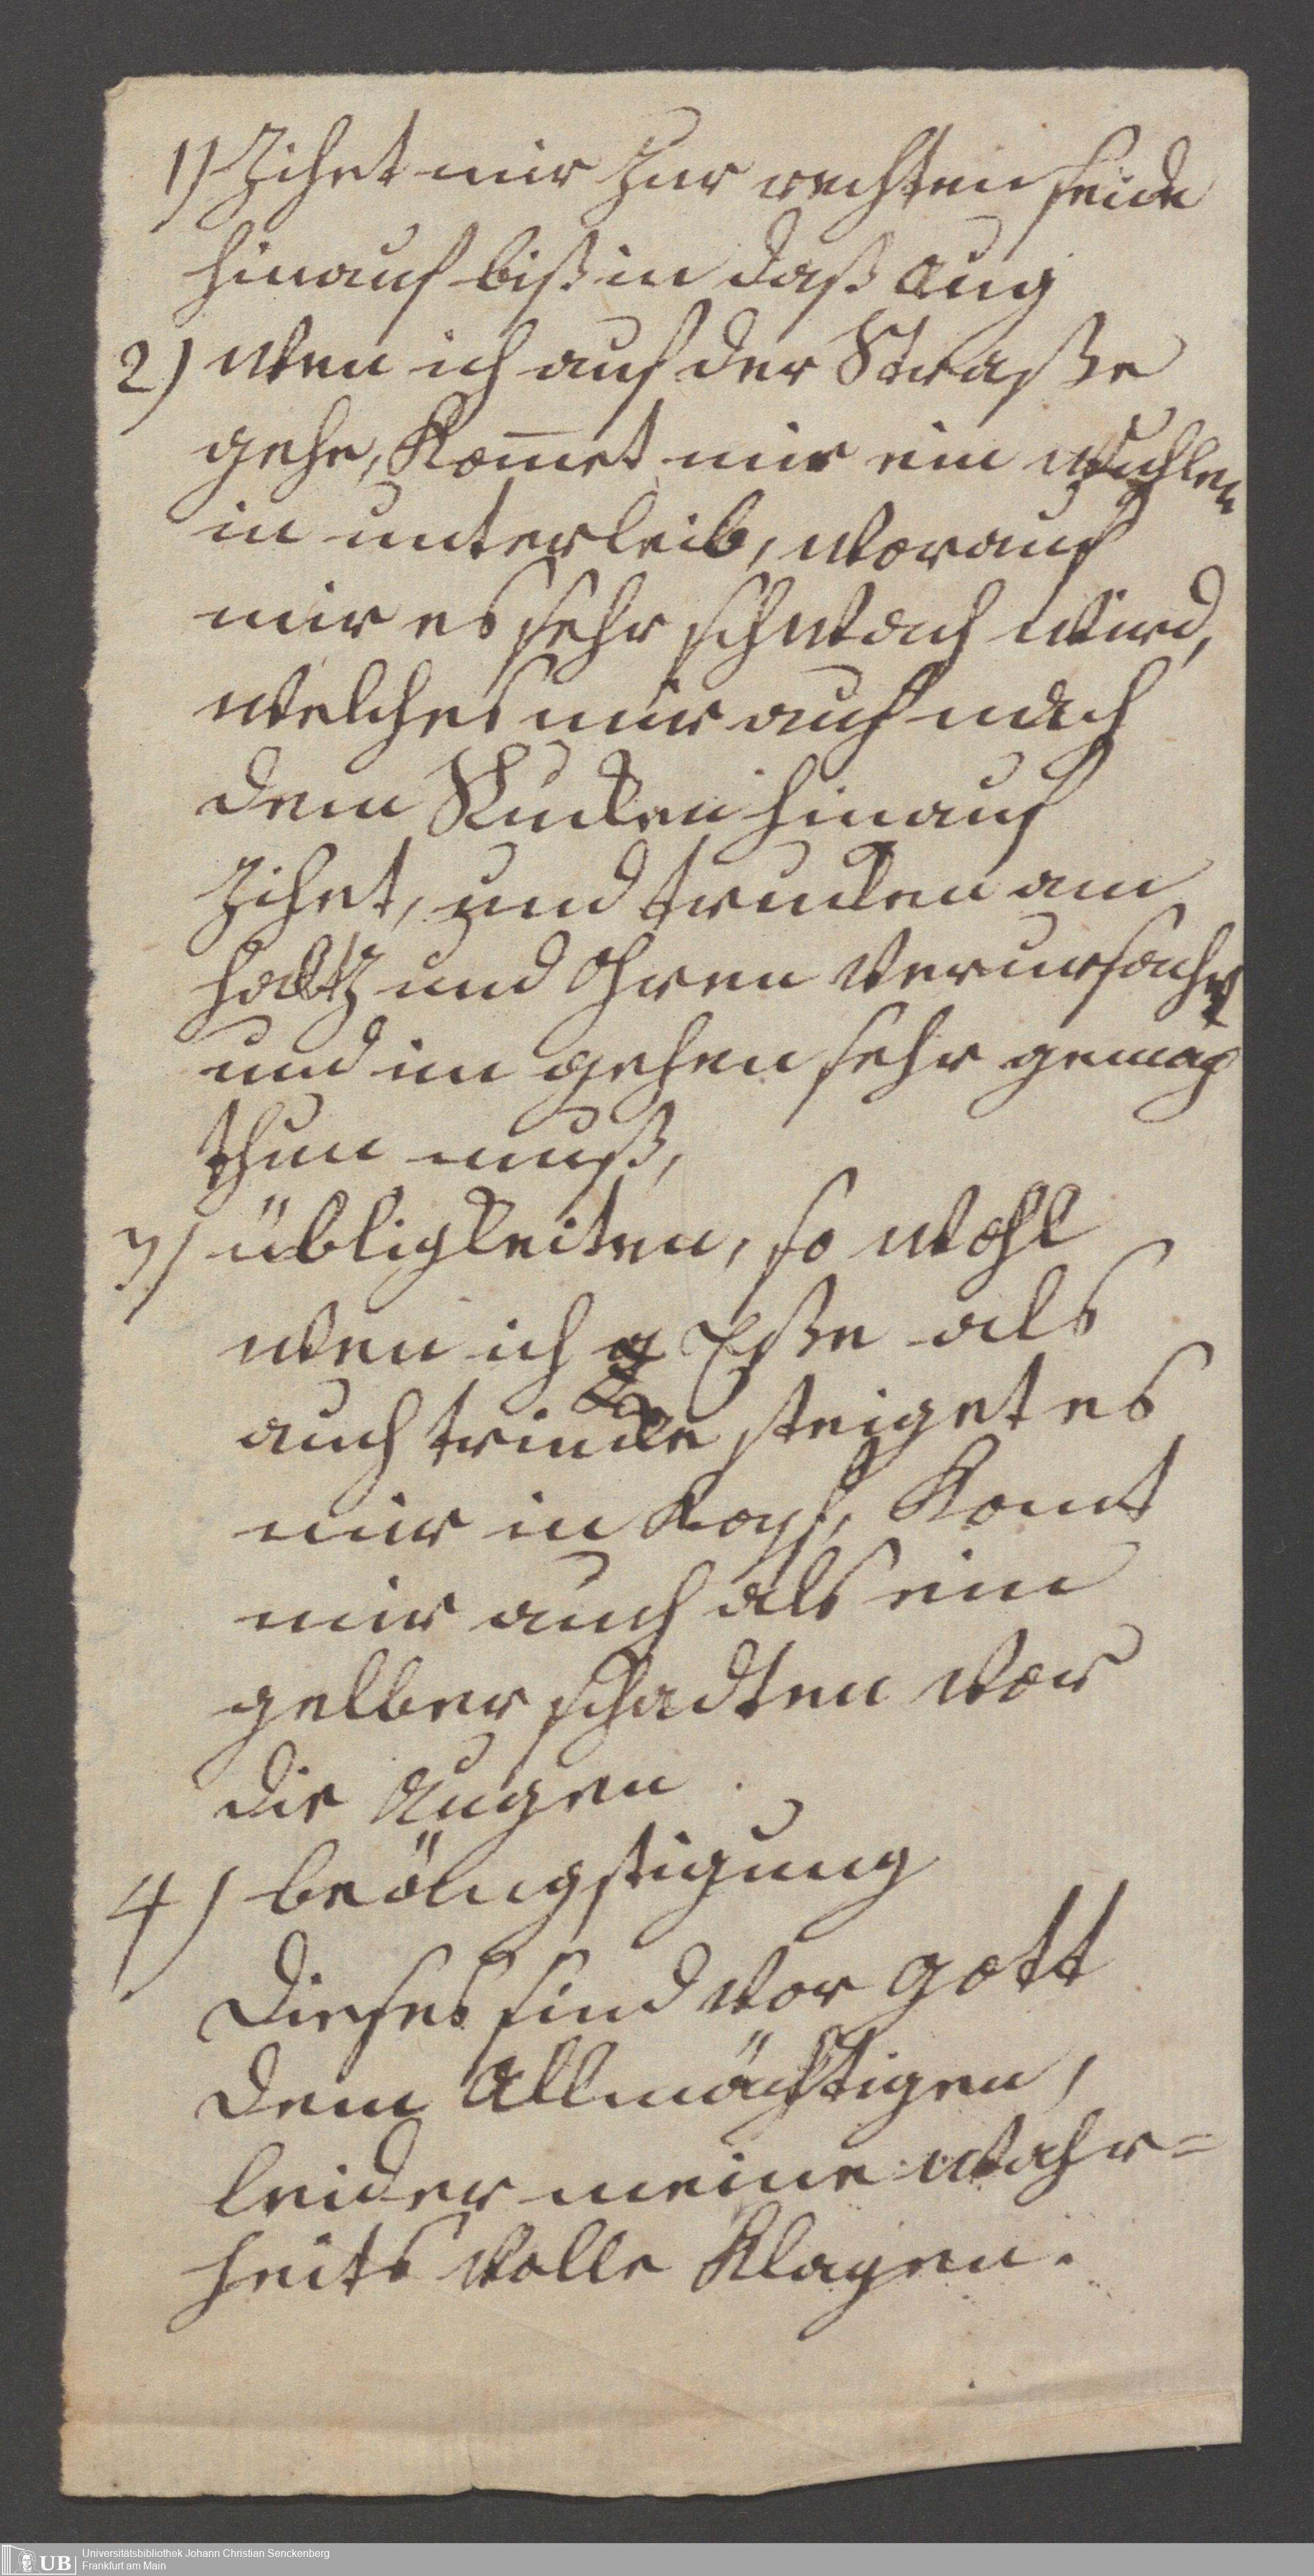 1) Zihet mir Zur rechten seide
hinauf biß in daß Aug
2) Wen ich auf der Straße
gehe, Kom̅et mir ein Wühlen
in unterleib, worauf
mir es sehr schwach wird,
welches mir auch nach
dem Rucken hinauf
Zihet, und trucken am
Haltz und Ohren verursacht
und im gehen sehr gemach
thun muß,
3) übligkeiten, so wohl
wen ich Eße als
auch trincke steiget es
mir in Kopf, Komt
mir auch als ein
gelber schadten vor
die Augen
4) beängstigung
Dieses sind vor gott
dem Allmächtigen,
leider meine wahr=
heits volle Klagen.
UB Universitätsbibliothek Johann Christian Senckenberg
Frankfurt am Main